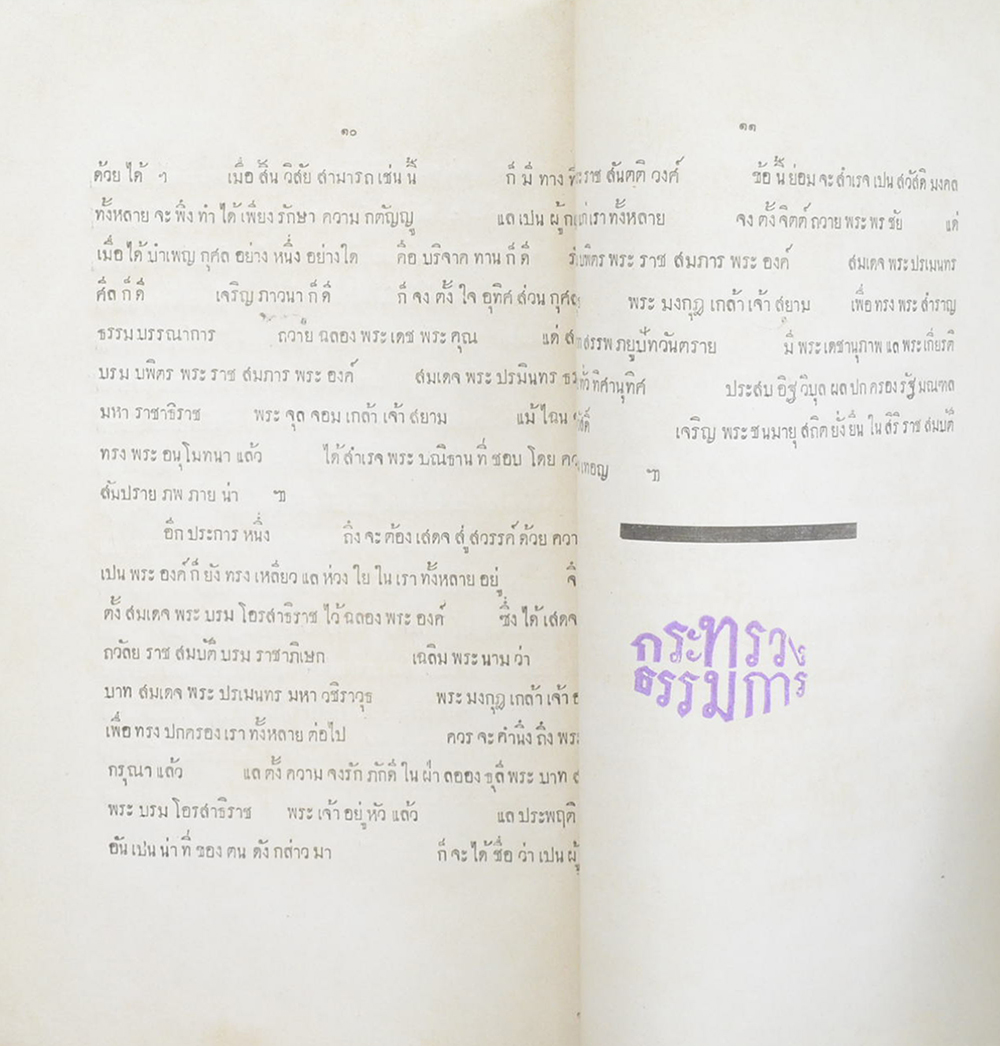 ๑๐
ด้วย ได้ ฯ เมื่อ สิ้น วิสัย สามารถ เช่น นี้ ก็ มี ทาง
ทั้งหลาย จะ พึง ทำ ได้ เพียง รักษา ความ กตัญญู แล เปน
เมื่อ ได้ บำเพญ กุศล อย่าง หนึ่ง อย่างใด คือ บริจาค ทาน ก็ ดี
ศีล ก็ ดี เจริญ ภาวนา ก็ ดี ก็ จง ตั้ง ใจ อุทิศ ส่วน กุศล
ธรรม บรรณาการ ถวาย ฉลอง พระ เดช พระ คุณ แด่
บรม บพิตร พระ ราช สมภาร พระ องค์ สมเดจ พระ ปรมินทร
มหา ราชาธิราช พระ จุล จอม เกล้า เจ้า สยาม แม้ ไฉน
ทรง พระ อนุโมทนา แล้ว ได้ สำเรจ พระ บณิธาน ที่ ชอบ โดย
สัมปราย ภพ ภาย น่า ๚
อีก ประการ หนึ่ง ถึง จะ ต้อง เสดจ สู่ สวรรค์ ด้วย
เปน พระ องค์ ก็ ยัง ทรง เหลียว แล ห่วง ใย ใน เรา ทั้งหลาย อยู่
ตั้ง สมเดจ พระ บรม โอรสาธิราช ไว้ ฉลอง พระ องค์ ซึ่ง ได้ เสดจ
ถวัลย ราช สมบัติ บรม ราชาภิเษก เฉลิม พระ นาม ว่า
บาท สมเดจ พระ ปรเมนทร มหา วชิราวุธ พระ มงกุฎ เกล้า เจ้า
เพื่อ ทรง ปกครอง เรา ทั้งหลาย ต่อไป ควร จะ คำนึง ถึง พระ
กรุณา แล้ว แล ตั้ง ความ จงรัก ภักดี ใน ฝ่า ลออง ธุลี พระ บาท
พระ บรม โอรสาธิราช พระ เจ้า อยู่ หัว แล้ว แล ประพฤติ
อัน เปน น่า ที่ ของ ตน ดัง กล่าว มา ก็ จะ ได้ ชื่อ ว่า เปน ผู้
๑๑
ราช สันตติ วงศ์ ข้อ นี้ ย่อม จะ สำเรจ เปน สวัสดิ มงคล
เรา ทั้งหลาย จง ตั้ง จิตต์ ถวาย พระ พร ชัย แด่
บพิตร พระ ราช สมภาร พระ องค์ สมเดจ พระ ปรเมนทร
พระ มงกุฎ เกล้า เจ้า สยาม เพื่อ ทรง พระ สำราญ
สรรพ ภยูปัทวันตราย มี พระ เดชานุภาพ แล พระ เกียรติ
ทั่ว ทิศานุทิศ ประสบ อิฐ วิบุล ผล ปก ครอง รัฐ มณฑล
เจริญ พระ ชนมายุ สถิต ยั่ง ยืน ใน สิริ ราช สมบัติ
เทอญ ๚
กระทรวง
ธรรมการ